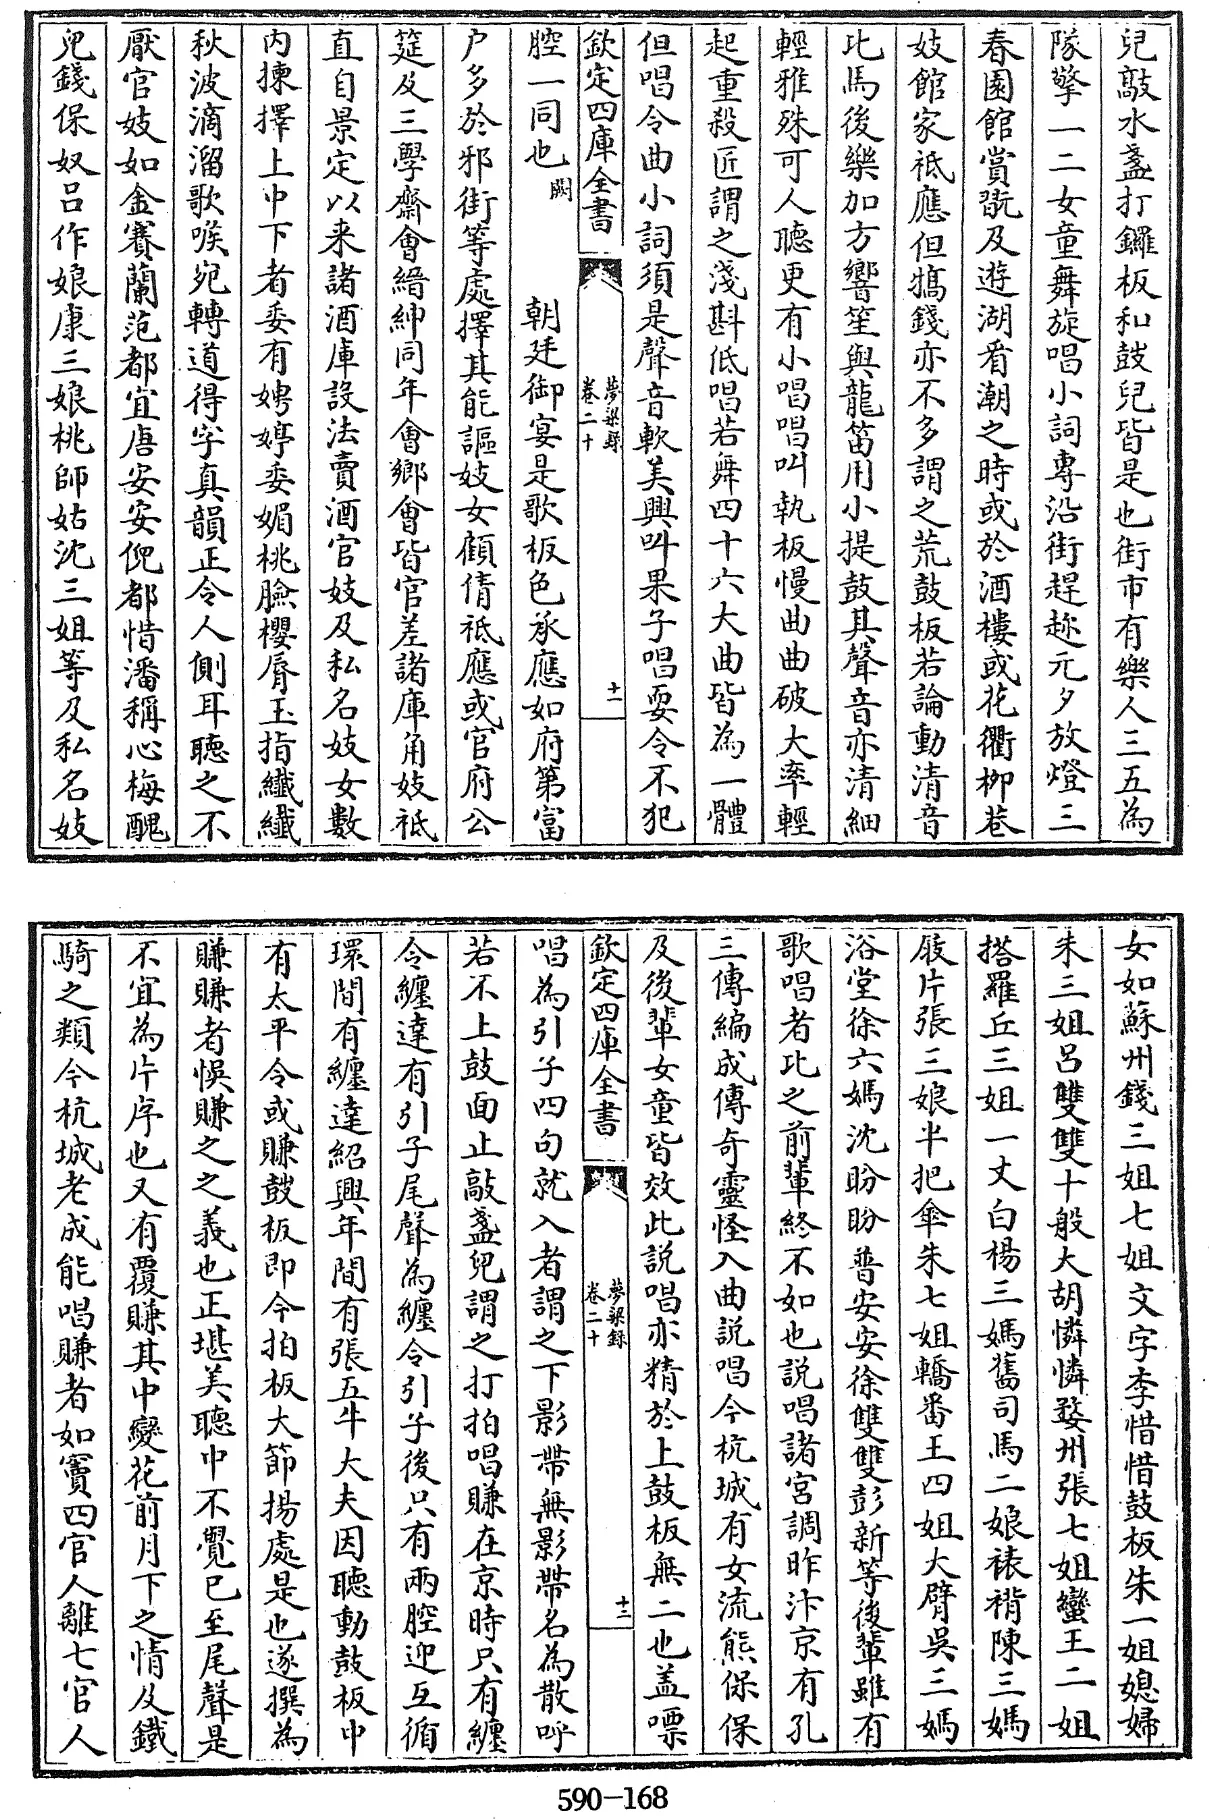 兒敲水盞打鑼板和鼓兒皆是也街市有樂人三五為
隊擎一二女童舞旋唱小詞專沿街趕趂元夕放燈三
春園館賞翫及遊湖看潮之時或於酒樓或花衢柳巷
妓館家祗應但犒錢亦不多謂之荒鼓板若論動清音
比馬後樂加方響笙與龍笛用小提鼓其聲音亦清細
輕雅殊可人聽更有小唱唱叫執板慢曲曲破大率輕
起重殺正謂之淺斟低唱若舞四十六大曲皆為一體
但唱令曲小詞須是聲音軟美興叫果子唱耍令不犯
欽定四庫全書 夢粱錄 卷二十 十一
腔一同也 闕 朝廷御宴是歌板色承應如府第富
户多於邪街等處擇其能謳妓女顧倩祗應或官府公
筵及三學齋會縉紳同年會鄉會皆官差諸庫角妓祗
直自景定以来諸酒庫設法賣酒官妓及私名妓女數
内揀擇上中下者委有娉婷委媚桃臉櫻脣玉指纖纖
秋波滴溜歌喉宛轉道得字真韻正令人側耳聽之不
厭官妓如金賽蘭范都宜唐安安倪都惜潘稱心梅醜
兒錢保奴吕作娘康三娘桃師姑沈三姐等及私名妓
女如蘇州錢三姐七姐文字季惜惜鼓板朱一姐媳婦
朱三姐吕雙雙十般大胡憐憐婺州張七姐蠻王二姐
搭羅丘三姐一丈白楊三媽舊司馬二娘裱褙陳三媽
屐片張三娘半把傘朱七姐轎番王四姐大臂吳三媽
浴堂徐六媽沈盼盼普安安徐雙雙彭新等後輩雖有
歌唱者比之前輩終不如也説唱諸宮調昨汴京有孔
三傳編成傳奇靈怪入曲説唱今杭城有女流熊保保
及後輩女童皆效此説唱亦精於上鼓板無二也盖嘌
欽定四庫全書 夢粱錄 卷二十 十三
唱為引子四句就入者謂之下影帶無影帶名為散呼
若不上鼓面止敲盞兒謂之打拍唱賺在京時只有纏
令纏達有引子尾聲為纏令引子後只有兩腔迎互循
環間有纏達紹興年間有張五牛大夫因聽動鼓板中
有太平令或賺鼓板即今拍板大節揚處是也遂撰為
賺賺者悞賺之之義也正堪美聽中不覺已至尾聲是
不宜為片序也又有覆賺其中變花前月下之情及鐵
騎之類今杭城老成能唱賺者如竇四官人離七官人
590-168